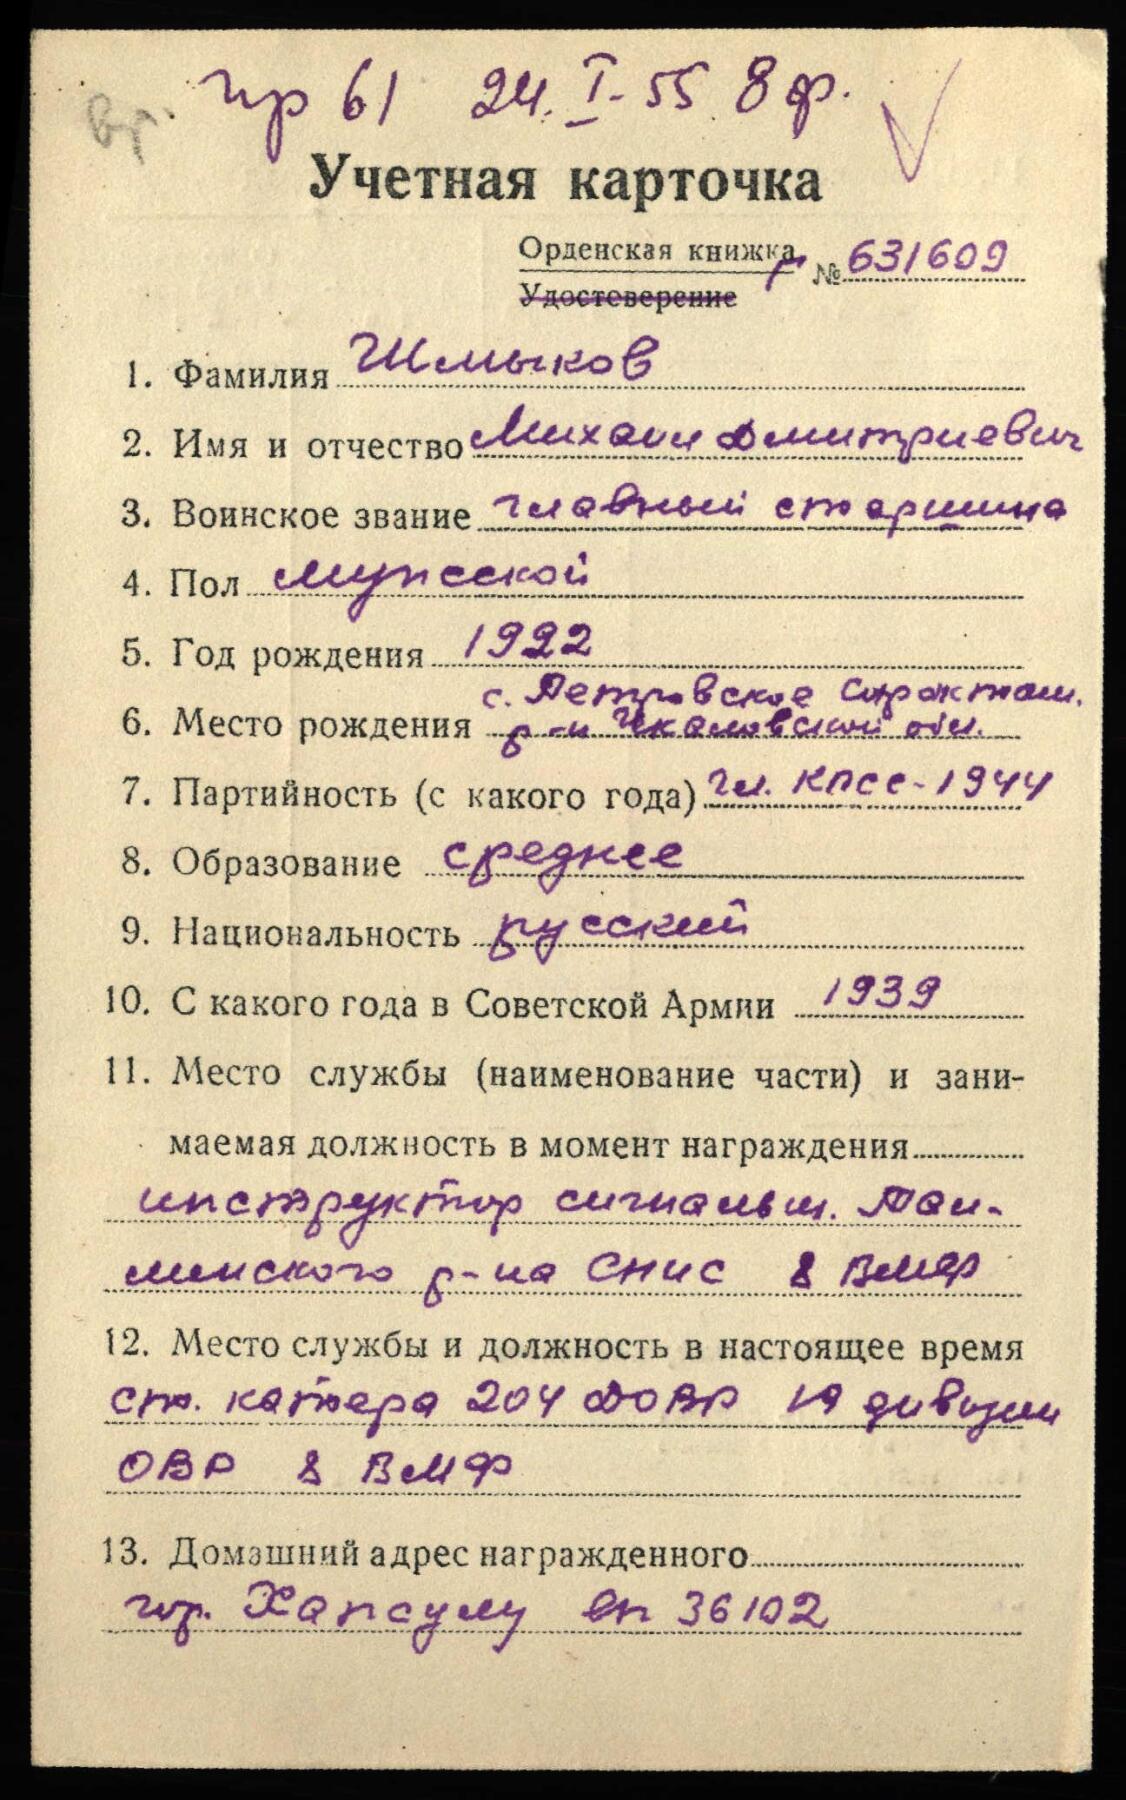 вр. пр 61 24. I-55 8 ф.
Учетная карточка
Орденская книжка г № 631609
Удостоверение
1. Фамилия Шмыков
2. Имя и отчество Михаил Дмитриевич
3. Воинское звание главный старшина
4. Пол мужской
5. Год рождения 1922
с. Петровское Сарокташ.
6. Место рождения р-н Чкаловской обл.
7. Партийность (с какого года) чл. КПСС-1944
8. Образование среднее
9. Национальность русский
10. С какого года в Советской Армии 1939
11. Место службы (наименование части) и зани-
маемая должность в момент награждения
инструктор сигнальщ. Тал-
линского р-на СНИС 8 ВМФ
12. Место службы и должность в настоящее время
ст. катера 204 ДОВР дивизии
ОВР 8 ВМФ
13. Домашний адрес награжденного
гор. Хапсулу вп 36102